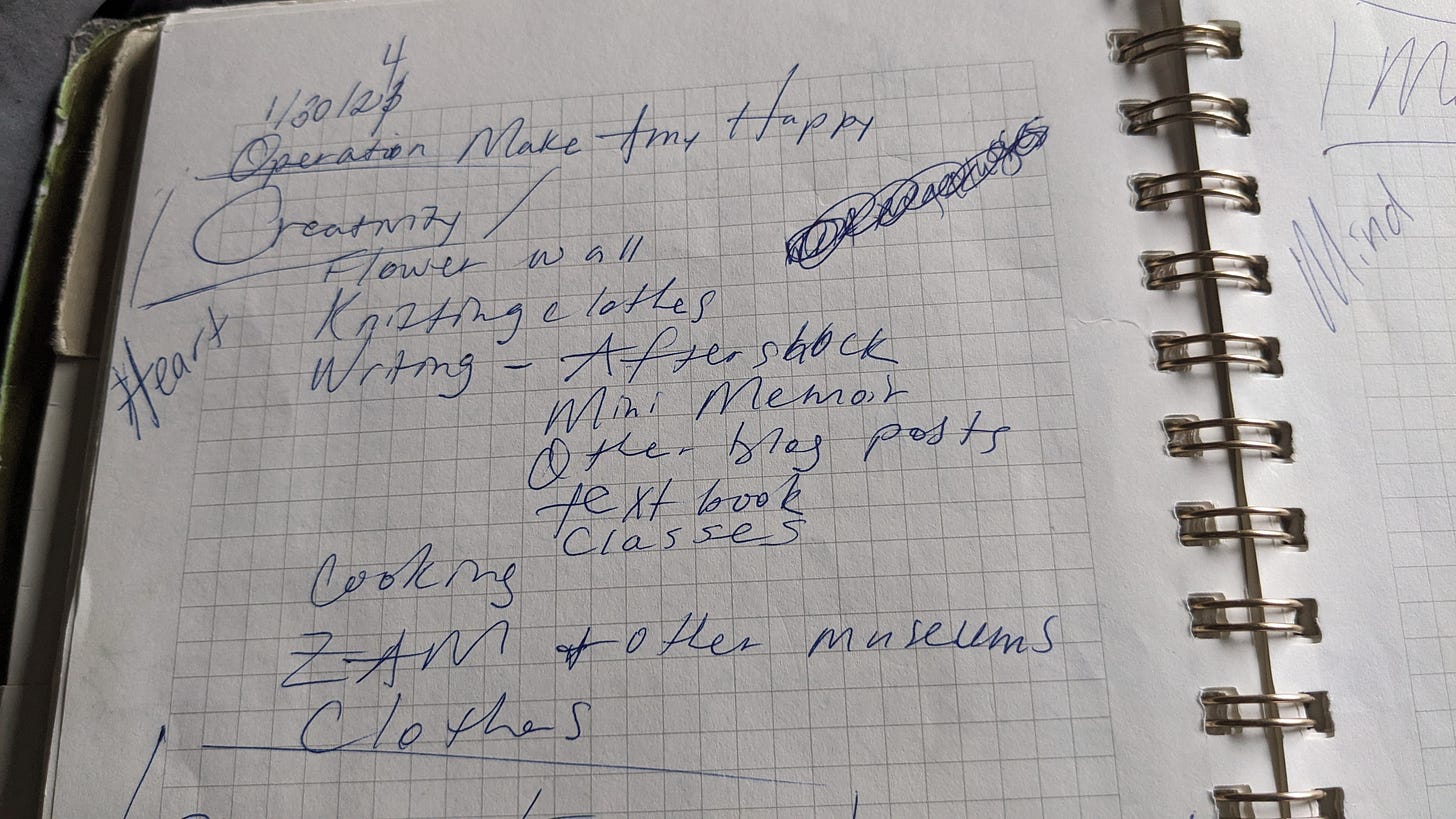 4
1/30/23
Operation Make Amy Happy
Creativity
Flower wall
Knitting clothes
Heart
Writing - Aftershock
Mini Memoir
Other blog posts
text book
classes
Cooking
ZAM + other museums
Clothes
Mind